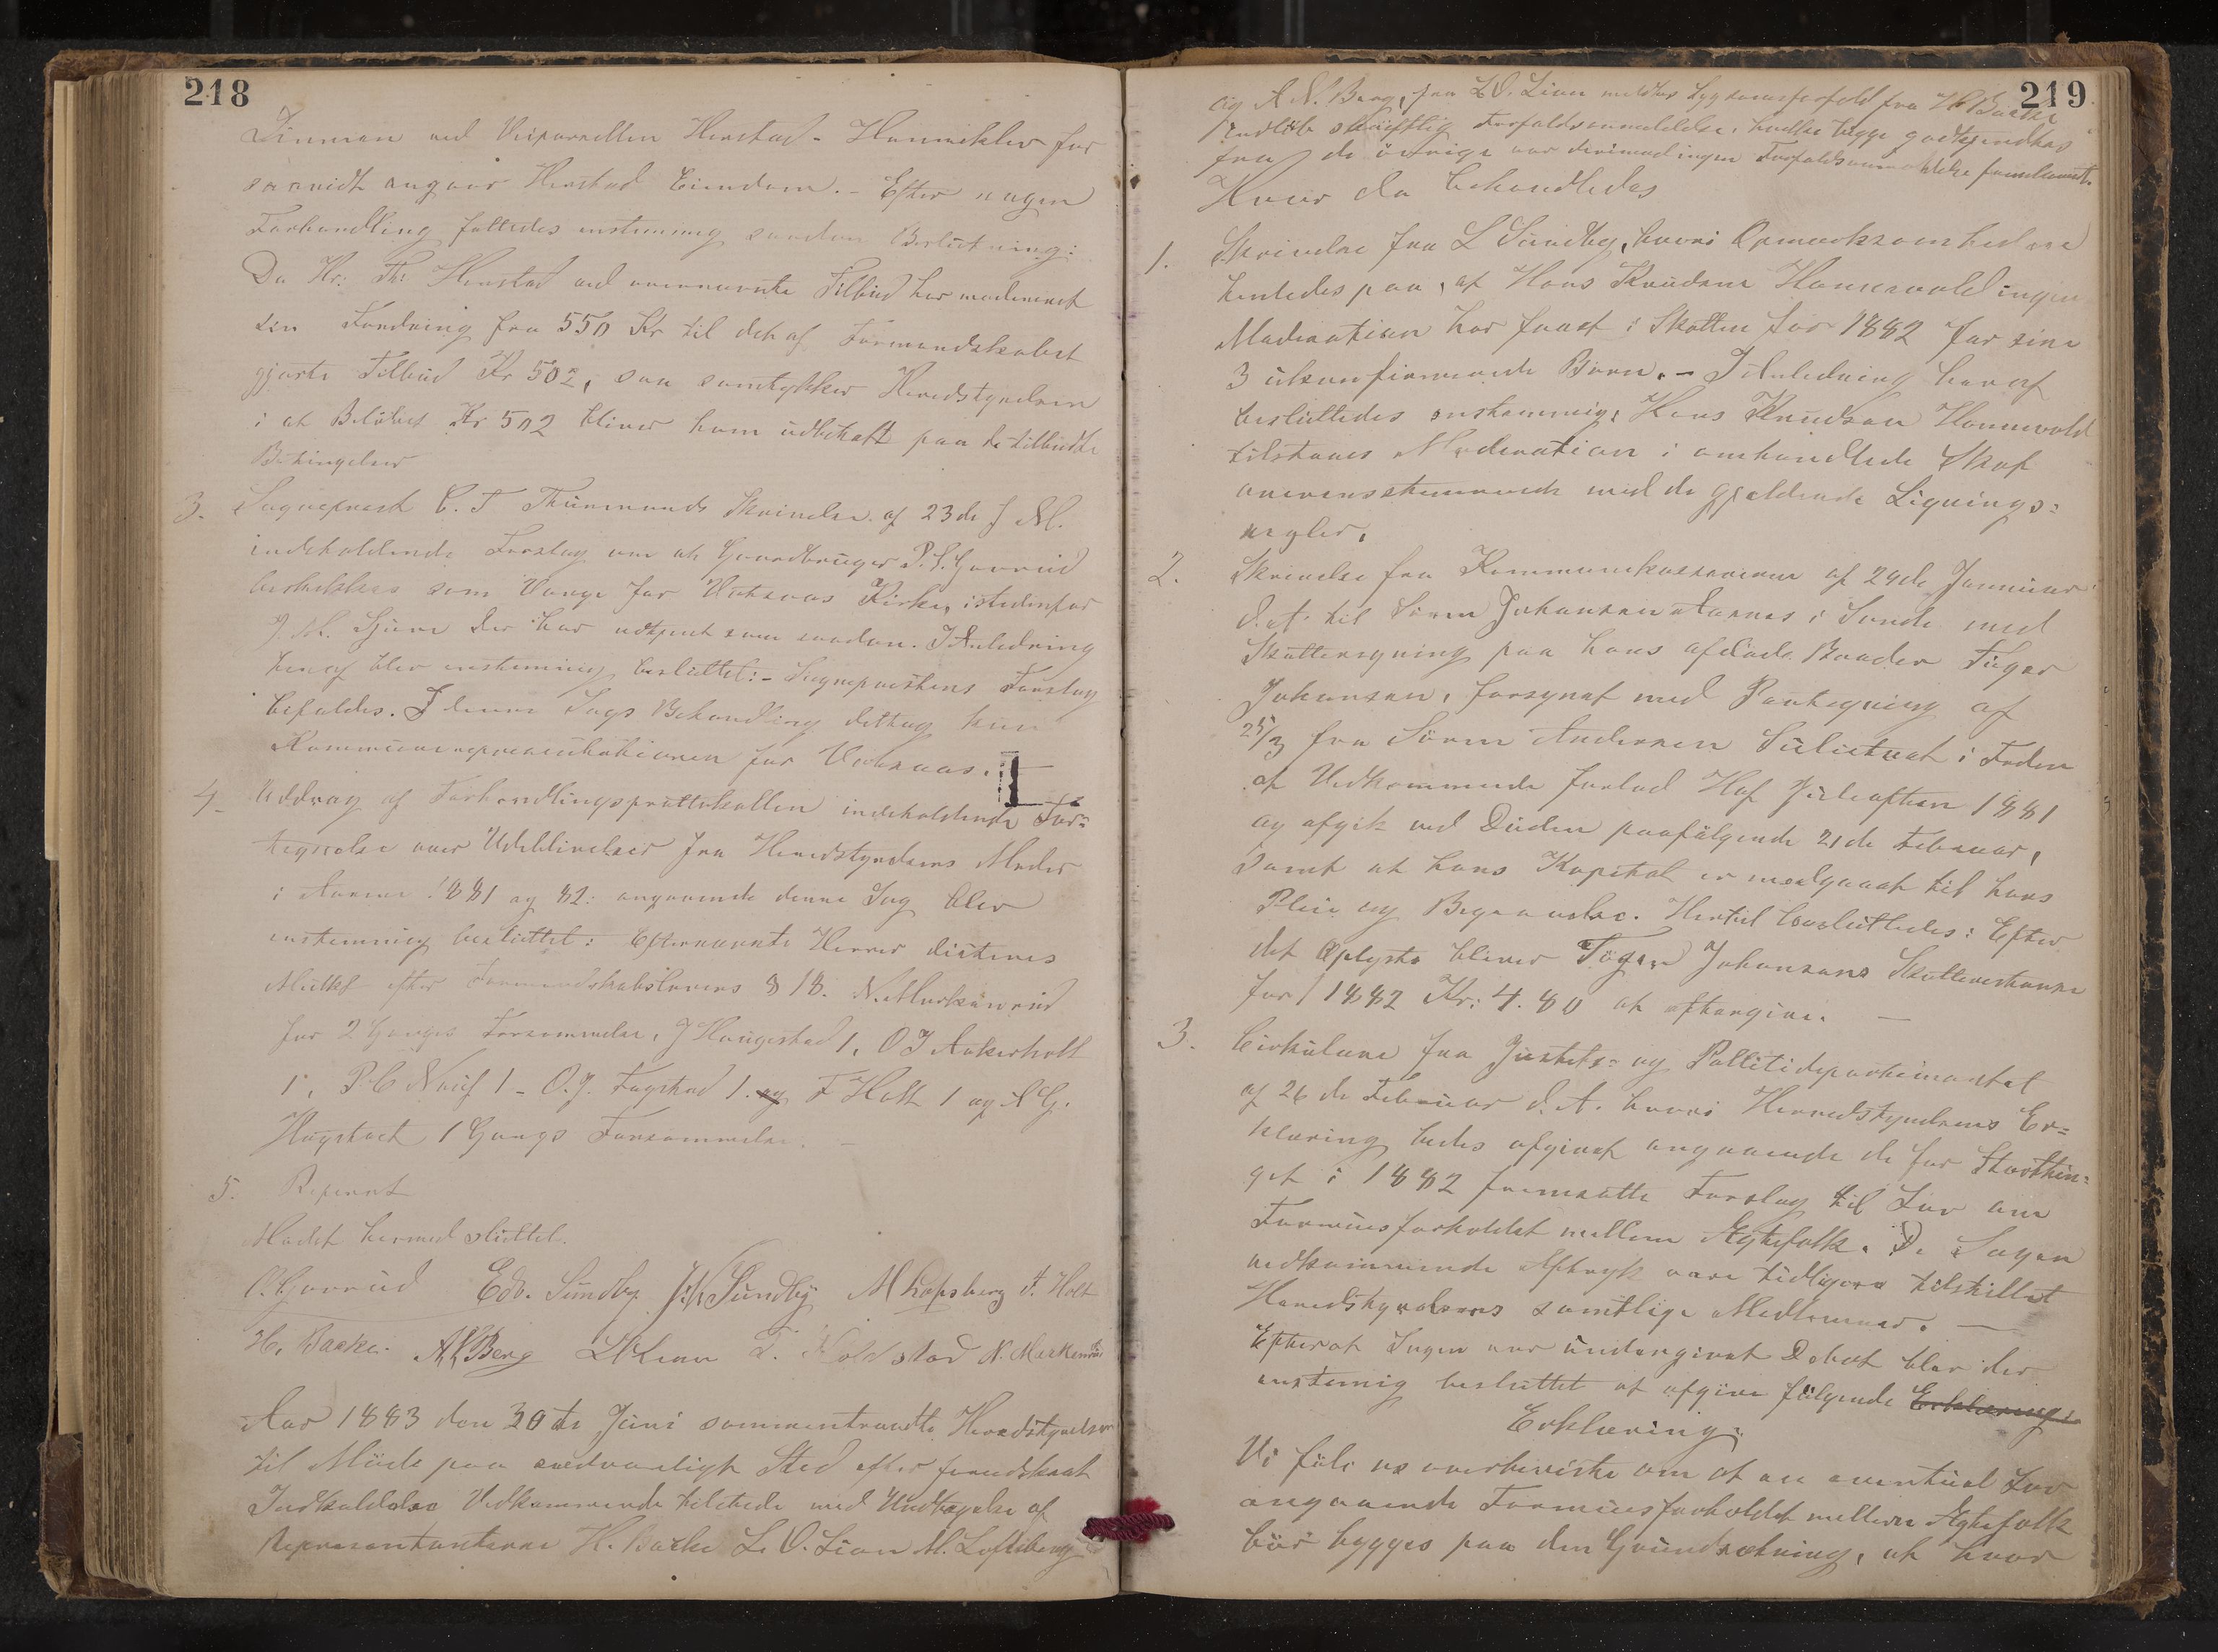 218
Linman ved Veiparcellen Henstad - Hannekler for
saavidt angaar Henstad Eiendom. - Efter nogen
Forhandling fattedes enstemmig saadan Beslutning:
Da Hr: Th: Henstad ved overnævnte Tilbud har modereret
sin Fordring fra 550 Kr til det af Formandskabet
gjorte Tilbud Kr 502, saa samtykker Heredstyrelsen
i at Beløbet Kr 502 bliver ham udbetalt paa de tilbudte
Betingelser
3. Sognepræst C. T Thurmanns Skrivelse af 23de f M.
indeholdende Forslag om at Gaardbruger P. L. Gavrud
beskikkes som Værge for Vatnaas Kirke, istedenfor
der har udtjent som saadan. I Anledning
heraf blev enstemmig besluttet: - Sognepræstens Forslag
bifaldes. I denne Sags Behandling deltog kun
Kommunerepræsentationen for Vatnaas.
4. Uddrag af Forhandlingsprottokollen indeholdende For=
tegnelse over Udeblivelser fra Heredstyrelsens Møder
i Aarene 1881 og 82: angaaende denne Sag blev
enstemmig besluttet: Efternævnte Herrer dicteres
Mulkt efter Formandskabslovens § 18. N. Morkænrud
for 2 Ganges Forsømmelse, J Haugestad 1, O J Aakerholt
1, P. C Næss 1 - O. J. Fagstad 1. og F Holt 1 og A G.
Hagstad 1 Gangs Forsømmelse. -
5. Referat
Mødet hermed sluttet.
O. Gavrud Edv. Sundby M Lofsberg F. Holt
H. Backe. A N Berg L O Lian N. Morkenrud
Aar 1883 den 30te Juni sammentraadte Heredstyrelsen
til Møde paa sædvanligt Sted efter forudskeet
Indkaldelse Vedkommende tilstede med Undtagelse af
Representanterne H. Backe L. O. Lian M. Loftsberg
219
og A N. Berg, fra L O. Lian meldtes Sygdomsforfald fra H Backe
indløb skriftlig Forfaldsanmeldelse, hvilke begge godkjendtes
fra de øvrige var derimod ingen Forfaldsanmeldelse fremkommet.
Hvor da behandledes
1. Skrivelse fra L Sundby, hvori Opmærksomheden
henledes paa, at Hans Knudsen Hannevold ingen
Moderation har faaet i Skatten for 1882 for sine
3 ukonfirmerede Børn. - I Anledning heraf
besluttedes enstemmig: Hans Knudsen Hannevold
tilstaaes Moderation i omhandlede Skat
overensstemmende med de gjældende Lignings=
regler.
2. Skrivelse fra Kommunekassereren af 24de Januar
d. A. til Søren Johansen Aarnes i Sande med
Skatteregning paa hans afdøde Broder Tøger
Johansen, forsynet med Paategning af
25/3 fra Søren Andersen
at Vedkommende forlod Hof Juleaften 1881
og afgik ved Døden paafølgende 21de Februar,
samt at hans Kapital er medgaaet til hans
Pleie og Begravelse. Hertil besluttedes: Efter
det oplyste bliver Tøger Johansens Skatterestance
for 1882 Kr: 4.80 at eftergive. -
3. Cirkulære fra Justits= og Politidepartementet
af 26de Februar d. A. hvori Herredstyrelsens Er=
klæring bedes afgivet angaaende de for Storthin=
get i 1882 fremsatte Forslag til Lov om
Formuesforholdet mellem Ægtefolk. De Sagen
vedkommende Aftryk vare tidligere tilstillet
Heredstyrelsens samtlige Medlemmer. -
Efterat Sagen var undergivet Debat blev der
enstemig besluttet at afgive følgende Erklæring:
Erklæring:
Vi føle os overbeviste om at en eventuel Lov
angaaende Formuesforholdet mellem Ægtefolk
bør bygges paa den Grundsætning, at hver